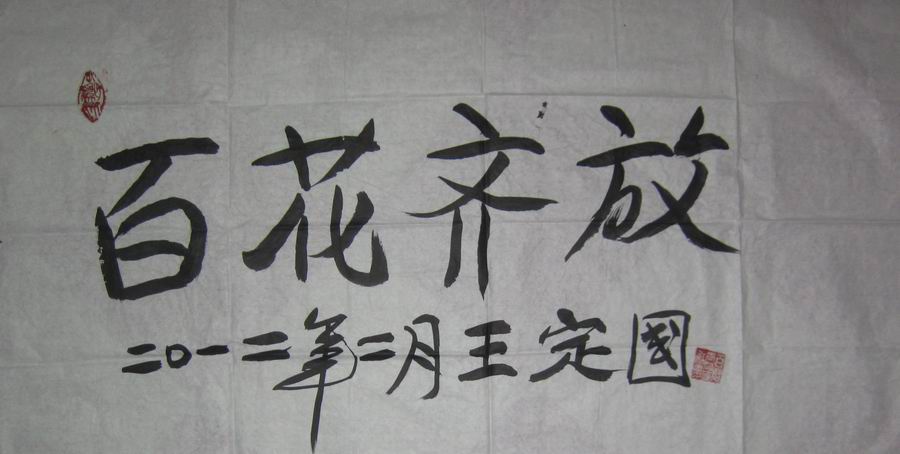 百花齐放
二〇一二年二月王定國